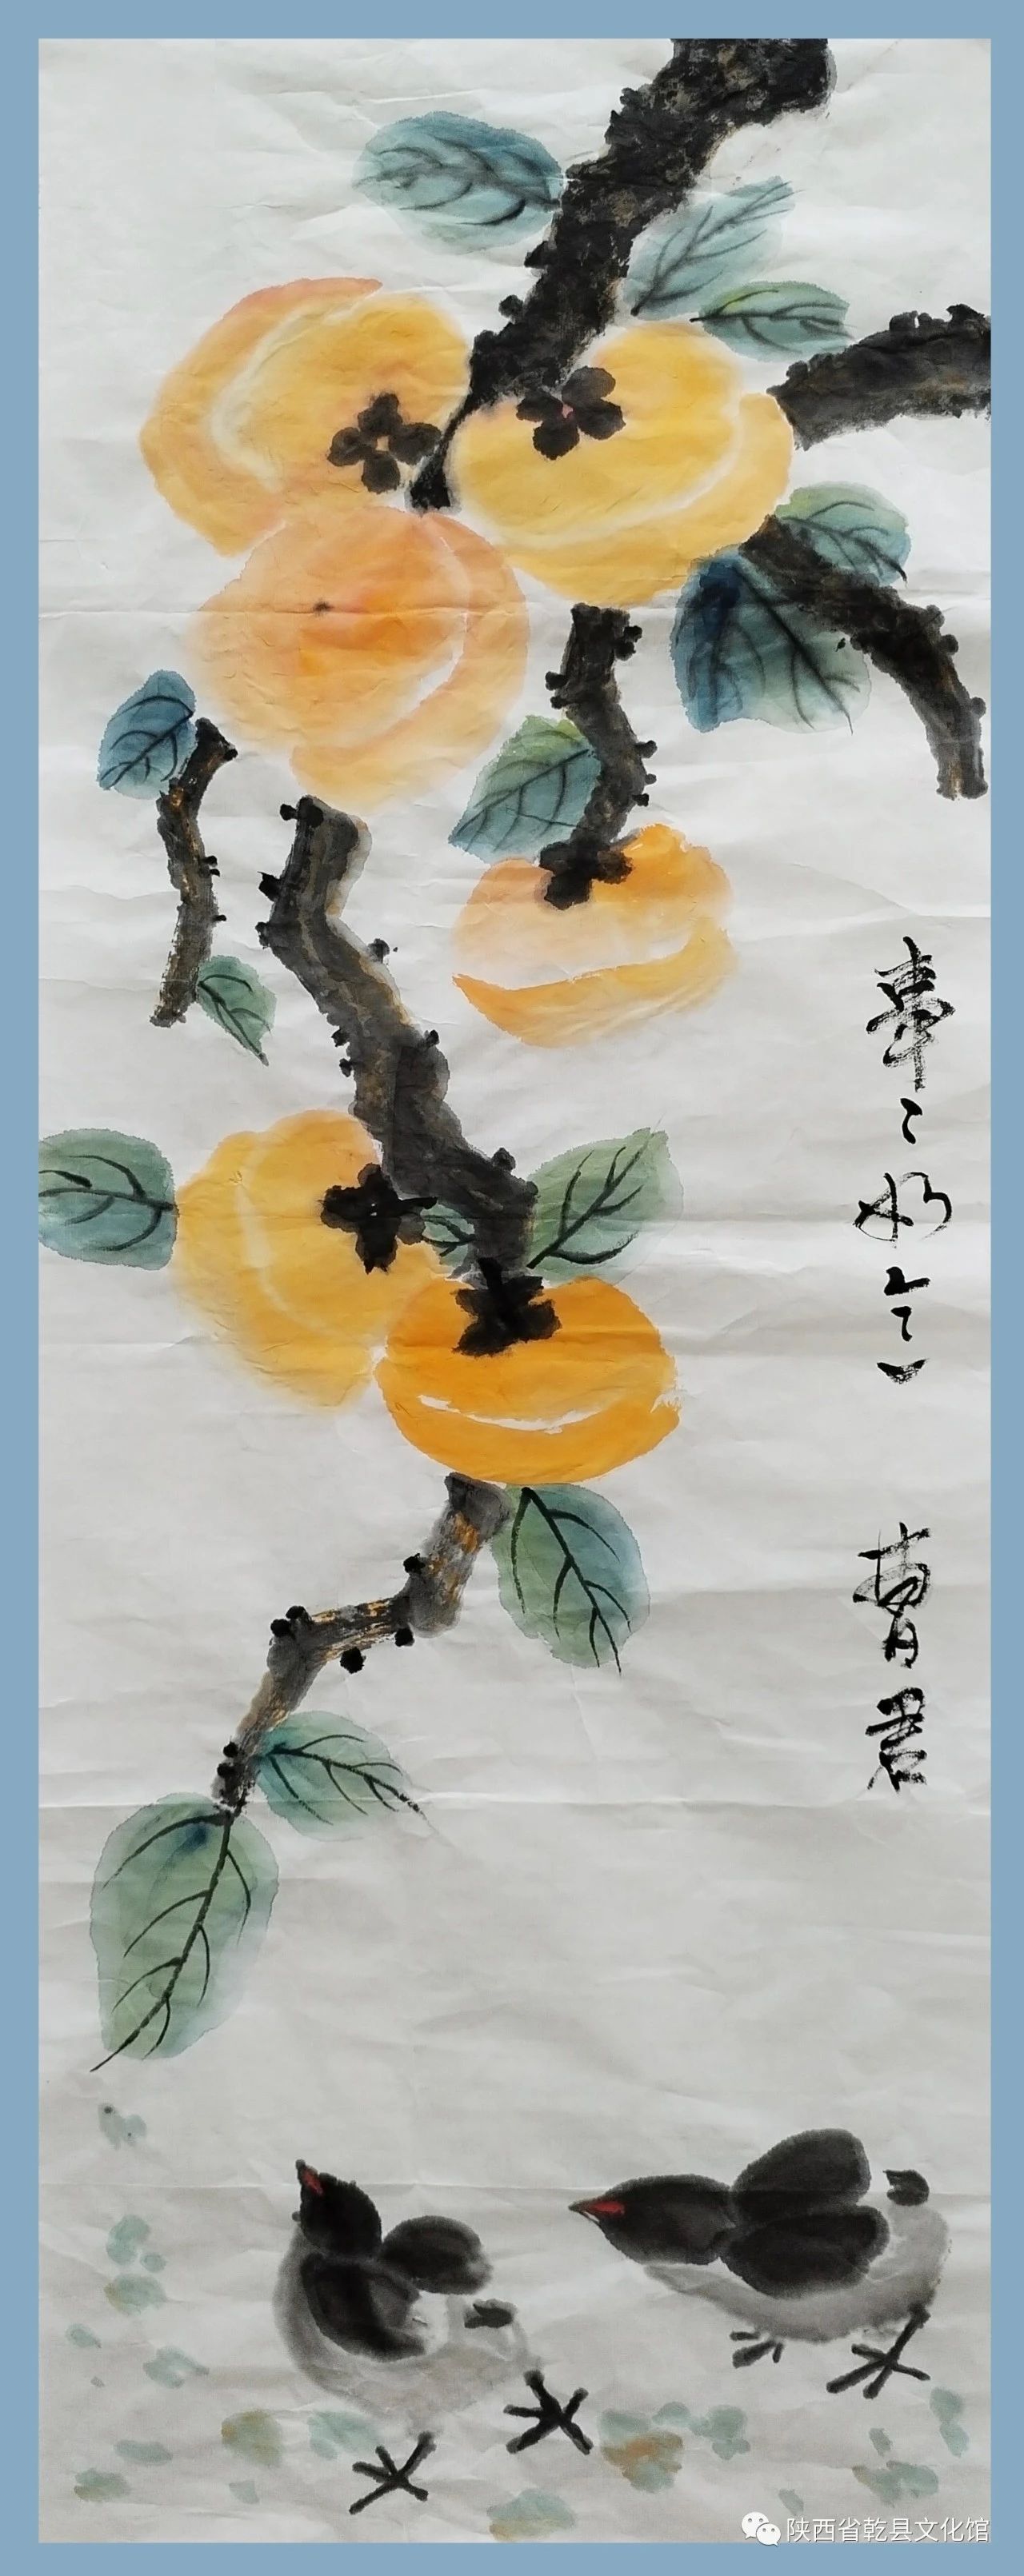 事々如意
曹君
陕西省乾县文化馆